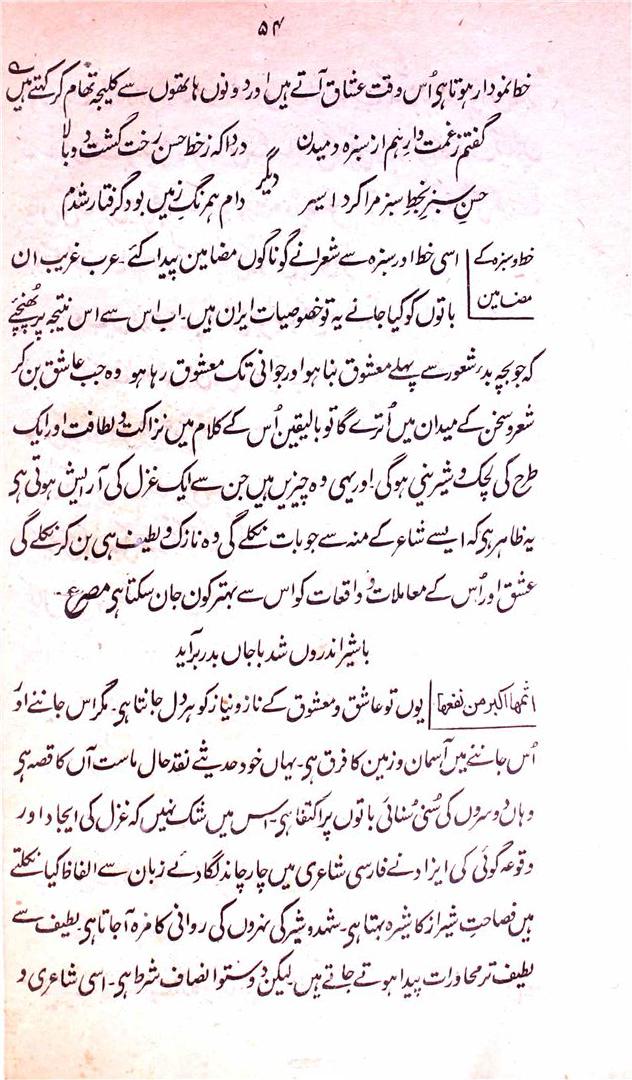 ۵۴
خط نمودار ہوتا ہی اُس وقت عشاق آتے ہیں اور دونوں ہاتھوں سے کلیجہ تھام کر کہتے ہیں
گفتم زغمت وارہم از سبزہ دمیدن دردا کہ زخط حسن رخت گشت دوبالا
دیگر
حسنِ سبزے بخطِ سبز مرا کرد اسیر دام ہمرنگ زمیں بود گرفتار شدم
خط و سبزہ کے مضامین
اسی خط اور سبزہ سے شعرا نے گوناگوں مضامین پیدا کئے۔ عرب غریب ان
باتوں کو کیا جانے یہ تو خصوصیات ایران ہیں۔ اب اس سے اس نتیجہ پر پہُنچئے
کہ جو بچہ بدءِ شعور سے پہلے معشوق بنا ہو اور جوانی تک معشوق رہا ہو وہ جب عاشق بن کر
شعر و سخن کے میدان میں اُترے گا تو بالیقین اُس کے کلام میں نزاکت و لطافت اور ایک
طرح کی لچک و شیرینی ہوگی۔ اور یہی وہ چیزیں ہیں جن سے ایک غزل کی آرایش ہوتی ہی
یہ ظاہر ہی کہ ایسے شاعر کے منہ سے جو بات نکلے گی وہ نازک و لطیف ہی بن کر نکلے گی
عشق اور اُس کے معاملات و واقعات کو اس سے بہتر کون جان سکتا ہی مصرع۔
با شیر اندروں شد با جاں بدر برآید
اثمہا اکبر من نفعہا
یوں تو عاشق و معشوق کے ناز و نیاز کو ہر دل جانتا ہی۔ مگر اس جاننے اور
اُس جاننے میں آسمان و زمین کا فرق ہی۔ یہاں خود حدیثے نقد حال ماست آں کا قصہ ہی
وہاں دوسروں کی سُنی سُنائی باتوں پر اکتفا ہی۔ اس میں شک نہیں کہ غزل کی ایجاد اور
وقوعہ گوئی کی ایزاد نے فارسی شاعری میں چار چاند لگا دئے زبان سے الفاظ کیا نکلتے
ہیں فصاحتِ شیراز کا شیرہ بہتا ہی۔ شہد و شیر کی نہروں کی روانی کا مزہ آ جاتا ہی۔ لطیف سے
لطیف تر محاورات پیدا ہوتے جاتے ہیں۔ لیکن دوستو انصاف شرط ہی۔ اسی شاعری و